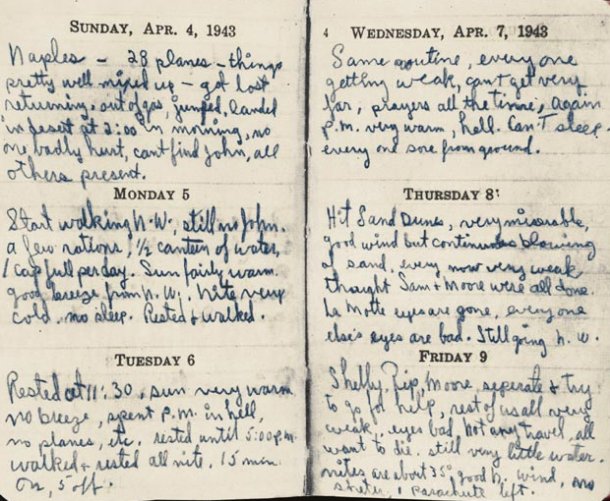 SUNDAY, APR. 4, 1943
Naples - 28 planes - things
pretty well mixed up - got lost
returning, out of gas, jumped, landed
in desert at 2:00 in morning, no
one badly hurt, cant find John, all
others present.
MONDAY 5
Start walking N.W., still no John.
a few rations, 1/2 canteen of water,
1 cap full per day. Sun fairly warm.
good breeze from N.W. Nite very
cold, no sleep. Rested & walked.
TUESDAY 6
Rested at 11:30, sun very warm
no breeze, spent P.M. in hell,
no planes, etc. rested until 5:00 P.M.
walked & rested all nite. 15 min
on, 5 off.
4 WEDNESDAY, APR. 7, 1943
Same routine, every one
getting weak, cant get very
far, prayers all the time, again
P.M. very warm, hell. Can't sleep
every one sore from ground.
THURSDAY 8
Hit Sand Dunes, very miserable,
good wind but continuous blowing
of sand, every now very weak
thought Sam & Moore were all done.
La Motte eyes are gone, every one
else's eyes are bad. Still going N.W.
FRIDAY 9
Shelly, Rip, Moore, seperate & try
to go for help, rest of us all very
weak, eyes bad. Not any travel, all
want to die. still very little water.
nites are about 35° good N. wind, no
shelter, 1 parachute left.